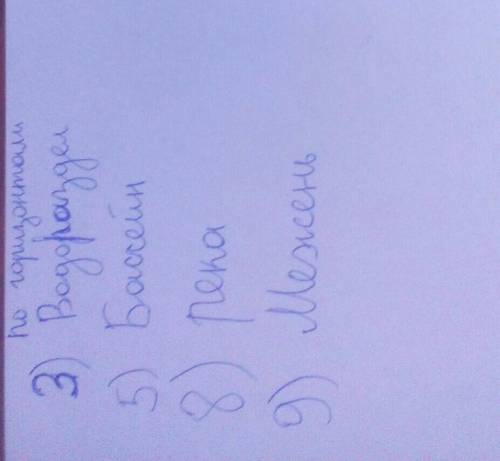 по горизонтали
3) Водораздел
5) Бассейн
8) река
9) Межень